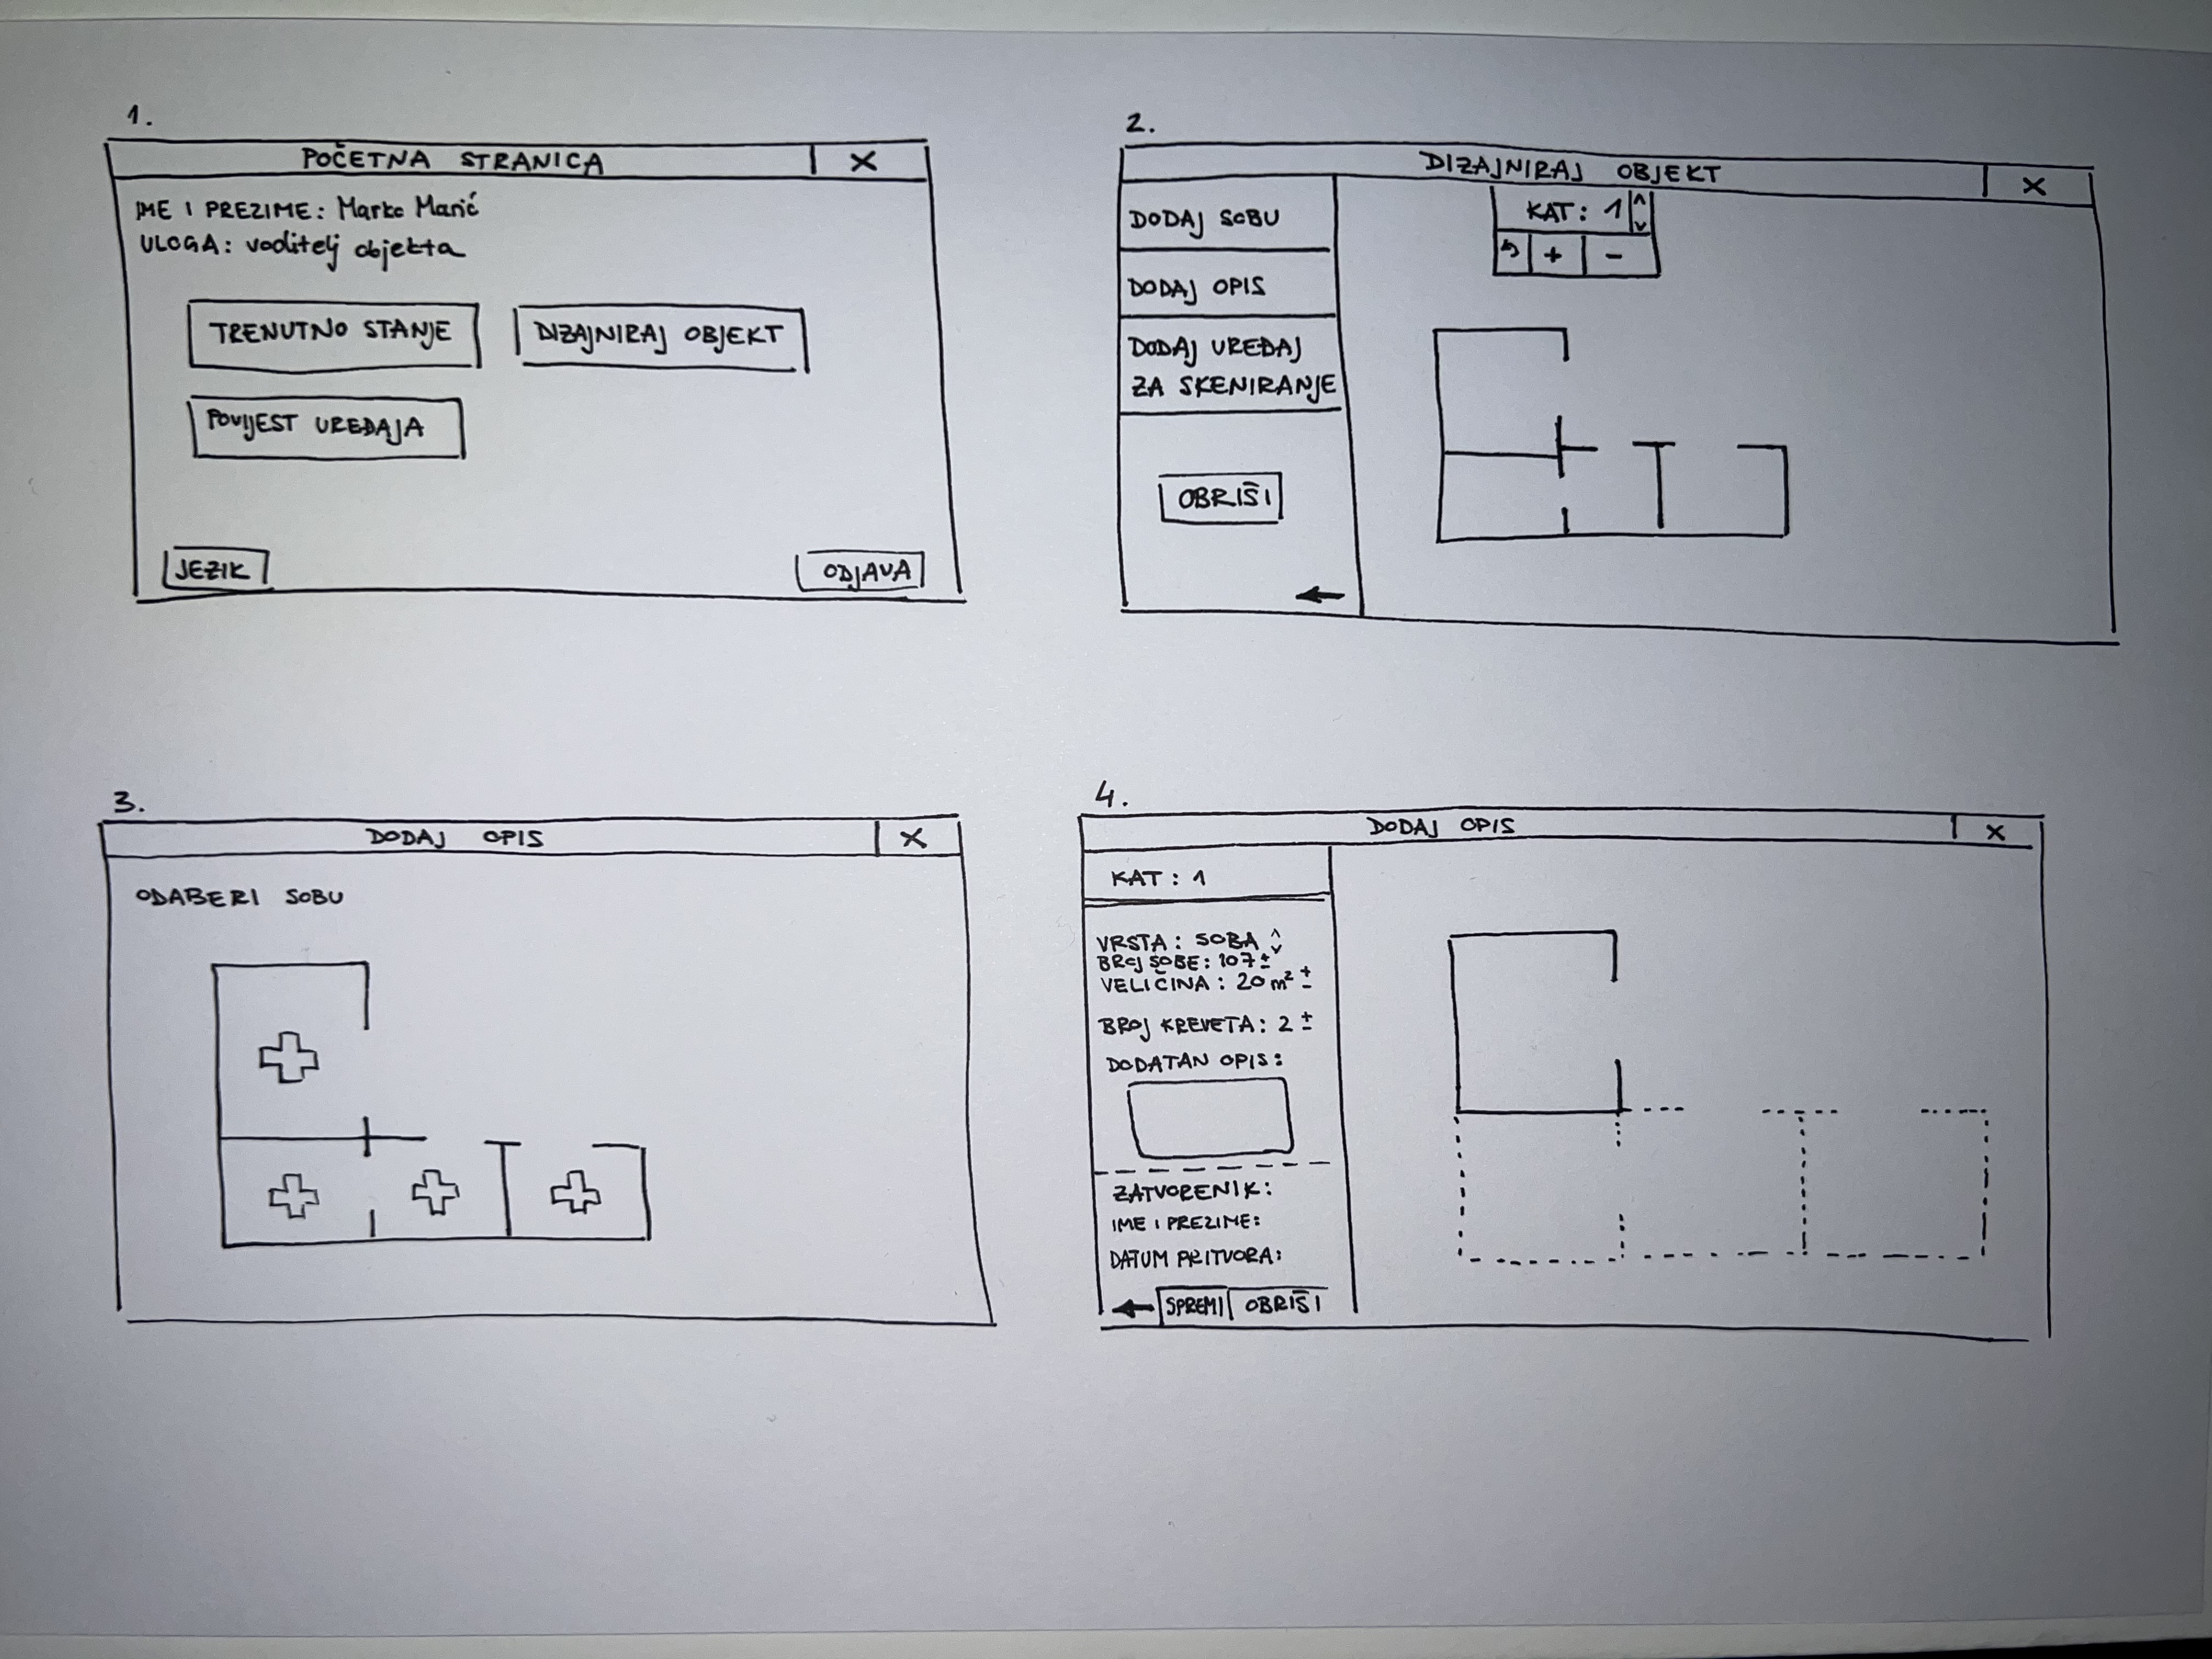 1.
POČETNA STRANICA X
IME I PREZIME: Marko Marić
ULOGA: voditelj objekta
TRENUTNO STANJE
DIZAJNIRAJ OBJEKT
POVIJEST UREĐAJA
JEZIK
ODJAVA
2.
DIZAJNIRAJ OBJEKT X
DODAJ SOBU
DODAJ OPIS
DODAJ UREĐAJ
ZA SKENIRANJE
OBRIŠI
KAT: 1
+ -
3.
DODAJ OPIS X
ODABERI SOBU
4.
DODAJ OPIS X
KAT: 1
VRSTA: SOBA
BROJ SOBE: 107 ±
VELIČINA: 20 m² ±
BROJ KREVETA: 2 ±
DODATAN OPIS:
ZATVORENIK:
IME I PREZIME:
DATUM PRITVORA:
SPREMI OBRIŠI